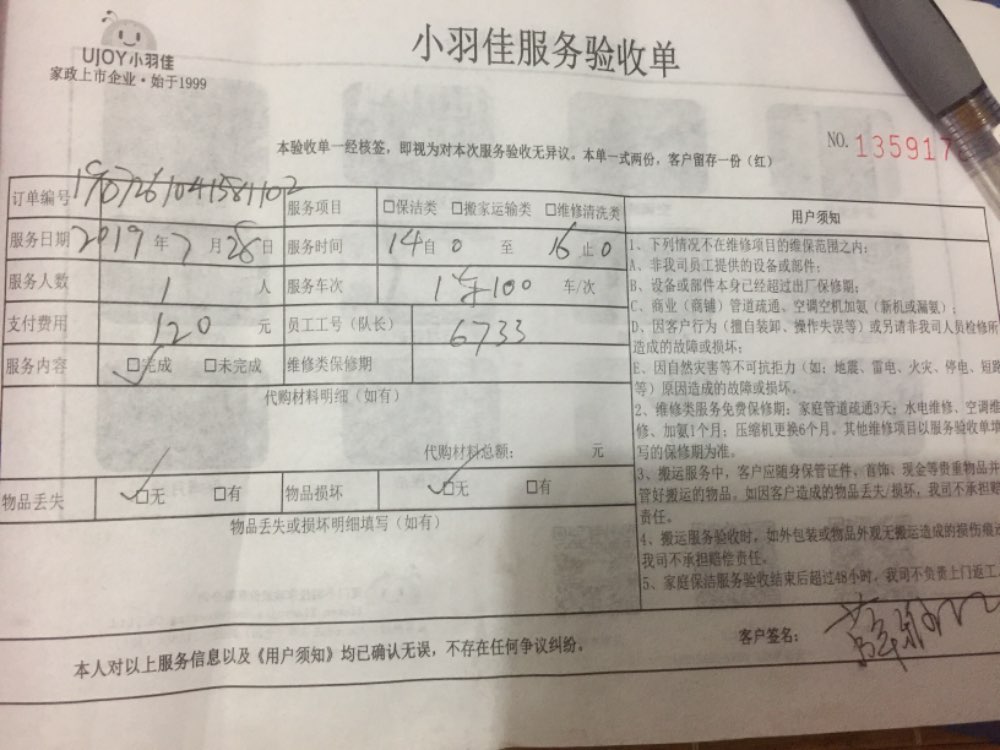 UJOY小羽佳
家政上市企业·始于1999
小羽佳服务验收单
本验收单一经核签，即视为对本次服务验收无异议。本单一式两份，客户留存一份（红）
NO. 135917
订单编号 1907261041581102 服务项目 □保洁类 □搬家运输类 □维修清洗类
服务日期 2019年7月28日 服务时间 14自0至16止0
服务人数 1人 服务车次 车/次
支付费用 120元 员工工号（队长） 6733
服务内容 □完成 □未完成 维修类保修期
代购材料明细（如有）
代购材料总额： 元
物品丢失 □无 □有 物品损坏 □无 □有
物品丢失或损坏明细填写（如有）
用户须知
1、下列情况不在维修项目的维保范围之内：
A、非我司员工提供的设备或部件；
B、设备或部件本身已经超过出厂保修期；
C、商业（商铺）管道疏通、空调空机加氨（新机或漏氨）；
D、因客户行为（擅自装卸、操作失误等）或另请非我司人员检修所
造成的故障或损坏；
E、因自然灾害等不可抗拒力（如：地震、雷电、火灾、停电、短路
等）原因造成的故障或损坏。
2、维修类服务免费保修期：家庭管道疏通3天；水电维修、空调维
修、加氨1个月；压缩机更换6个月。其他维修项目以服务验收单填
写的保修期为准。
3、搬运服务中，客户应随身保管证件、首饰、现金等贵重物品并
管好搬运的物品。如因客户造成的物品丢失/损坏，我司不承担赔
责任。
4、搬运服务验收时，如外包装或物品外观无搬运造成的损伤痕迹
我司不承担赔偿责任。
5、家庭保洁服务验收结束后超过48小时，我司不负责上门返工
客户签名：
本人对以上服务信息以及《用户须知》均已确认无误，不存在任何争议纠纷。